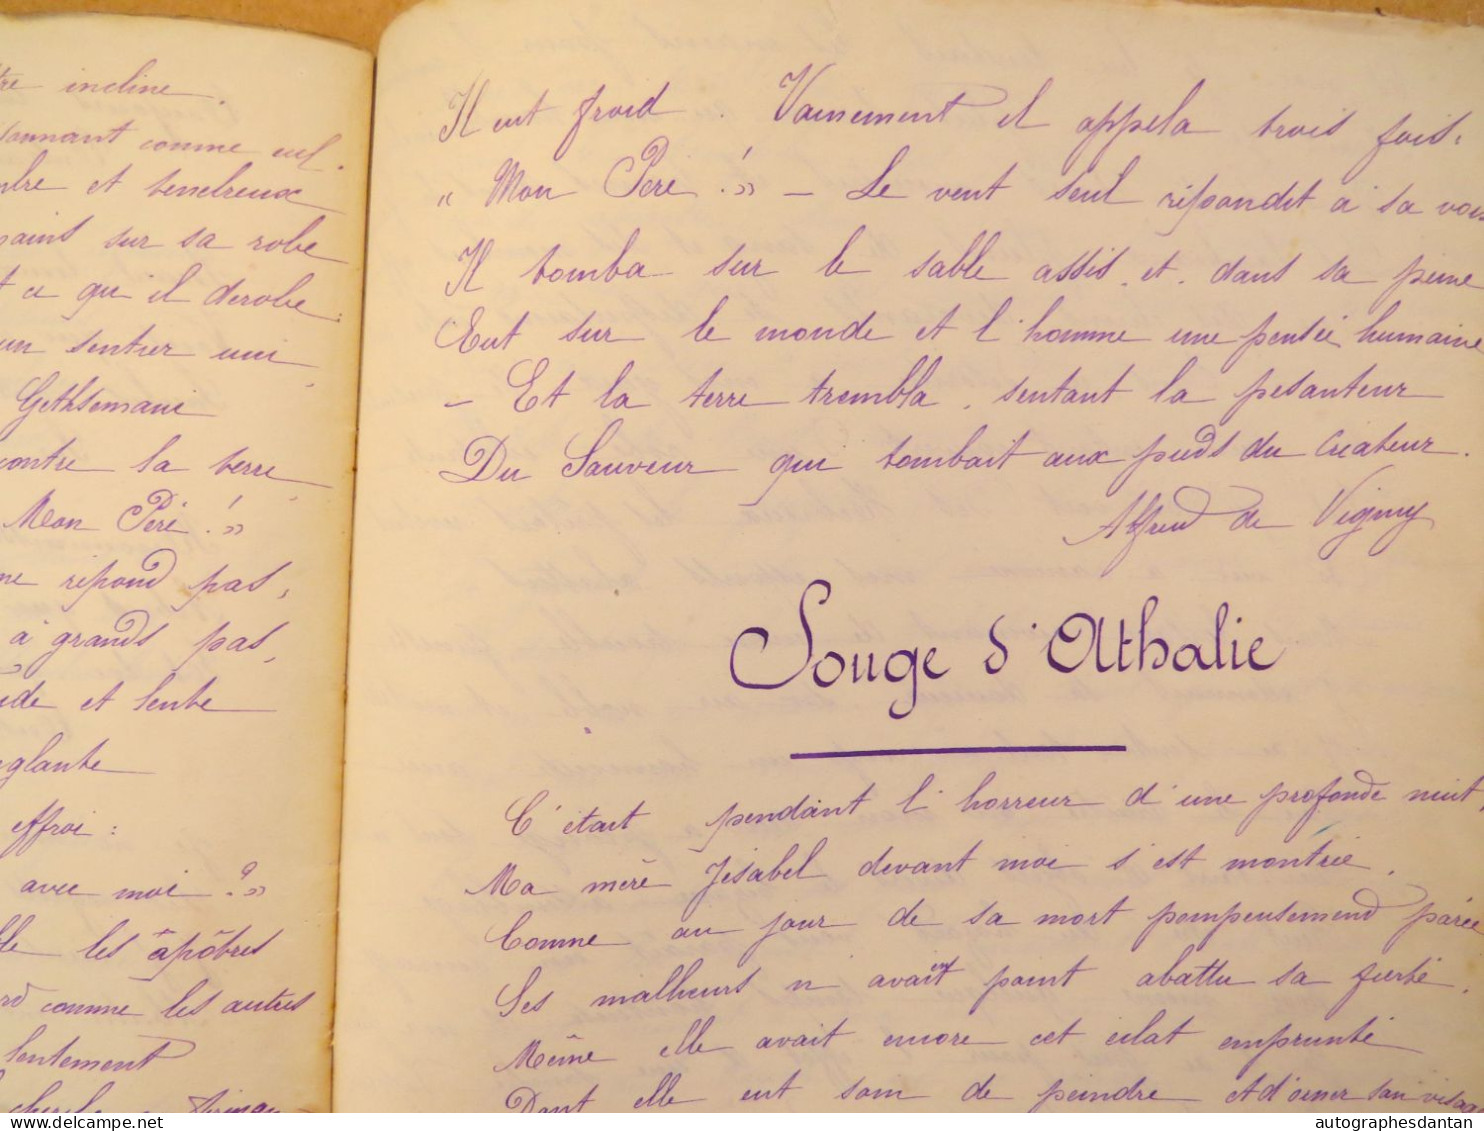 incline.
comme eux.
et tenebreux
sur sa robe
ce qu'il derobe:
un sentier uni
Gethsemani
contre la terre
Mon Père !»
ne répond pas,
à grands pas,
et lente
effroi:
avec moi ?»
les âpôtres
comme les autres
lentement
Il eut froid. Vainement il appela trois fois.
« Mon Père !» – Le vent seul répondit à sa voix
Il tomba sur le sable assis, et, dans sa peine
Eut sur le monde et l'homme une pensée humaine
– Et la terre trembla, sentant la pesanteur
Du Sauveur qui tombait aux pieds du Créateur.
Alfred de Vigny
Songe d'Athalie
C'était pendant l'horreur d'une profonde nuit
Ma mère Jésabel devant moi s'est montrée,
Comme au jour de sa mort pompeusement parée
Ses malheurs n'avaient point abattu sa fierté,
Même elle avait encore cet éclat emprunté
Dont elle eut soin de peindre et d'orner son visage
autographesdantan.com